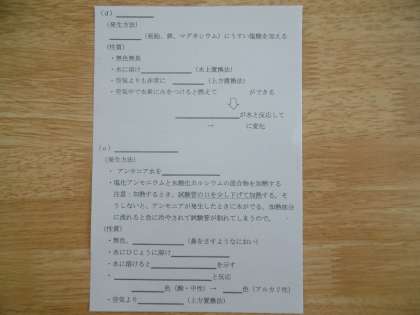 (d)
(発生方法)
(亜鉛、鉄、マグネシウム)にうすい塩酸を加える
(性質)
・無色無臭
・水に溶け (水上置換法)
・空気よりも非常に (上方置換法)
・空気中で水素に火をつけると燃えて ができる
が水と反応して
→ に変化
(e)
(発生方法)
・アンモニア水を
・塩化アンモニウムと水酸化カルシウムの混合物を加熱する
注意:加熱するとき、試験管の口を少し下げて加熱する。そ
うしないと、アンモニアが発生したときに水がでる。加熱部分
に流れると急に冷やされて試験管が割れてしまうので。
(性質)
・無色、 (鼻をさすようなにおい)
・水にひじょうに溶け
・水に溶けると を示す
・ と反応
色(酸・中性) → 色(アルカリ性)
・空気より (上方置換法)